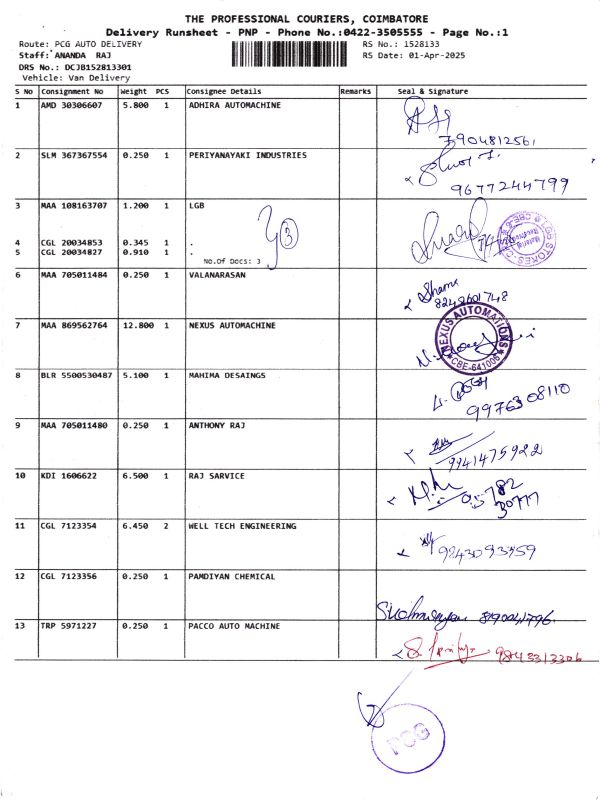 THE PROFESSIONAL COURIERS, COIMBATORE
Delivery Runsheet - PNP - Phone No.:0422-3505555 - Page No.:1
Route: PCG AUTO DELIVERY RS No.: 1528133
Staff: ANANDA RAJ RS Date: 01-Apr-2025
DRS No.: DCJB152813301
Vehicle: Van Delivery
S No Consignment No Weight PCS Consignee Details Remarks Seal & Signature
1 AMD 30306607 5.800 1 ADHIRA AUTOMACHINE
7904812561
2 SLM 367367554 0.250 1 PERIYANAYAKI INDUSTRIES
9677244799
3 MAA 108163707 1.200 1 LGB
3
4 CGL 20034853 0.345 1 .
5 CGL 20034827 0.910 1 .
No.Of Docs: 3
6 MAA 705011484 0.250 1 VALANARASAN
7 MAA 869562764 12.800 1 NEXUS AUTOMACHINE
NEXUS AUTOMATIONS
CBE-641006
8 BLR 5500530487 5.100 1 MAHIMA DESAINGS
9976308110
9 MAA 705011480 0.250 1 ANTHONY RAJ
9941475922
10 KDI 1606622 6.500 1 RAJ SARVICE
11 CGL 7123354 6.450 2 WELL TECH ENGINEERING
12 CGL 7123356 0.250 1 PAMDIYAN CHEMICAL
13 TRP 5971227 0.250 1 PACCO AUTO MACHINE
9843313306
PCG